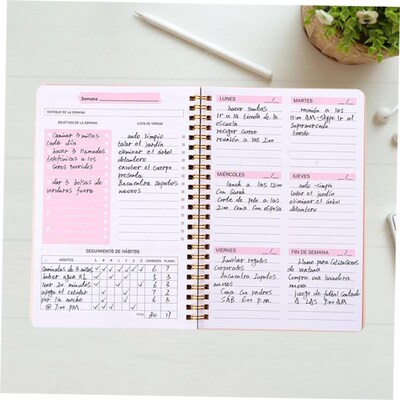 Semana
ENFOQUE DE LA SEMANA:
OBJETIVOS DE LA SEMANA
caminar 3 millas
cada día
hacer 3 llamadas
telefónicas a los
seres queridos
dar 3 bolsas de
verduras fuera
LISTA DE TAREAS
auto limpio
talar el jardín
eliminar el árbol
delantero
envolver el cuerpo
presente
Encuentra zapatos
nuevos
SEGUIMIENTO DE HÁBITOS
HÁBITOS
caminatas de 3 millas
beber agua
leer 20 minutos
apaga el celular
por la noche
@ 7:00 PM
TOTAL
30 17
LUNES
hacer tontos
ir a la tienda de la
escuela
recoger curso
reunión a las 2:00
MARTES
reunión a las
11:00 AM - Skype Ir al
supermercado
tarde
MIÉRCOLES
lunch a las 12:00
con Sarah
Corte de pelo a las
2:00 Cena con esposa
JUEVES
auto-limpio
talar el jardín
eliminar el árbol
delantero
VIERNES
Envolver regalos
corporales
Encuentra zapatos
nuevos
Cena con padres
6:00 p.m.
FIN DE SEMANA
Llame para
de ventana
Compra una lavadora
nueva
juego de fútbol soleado
A LAS 9:00 AM